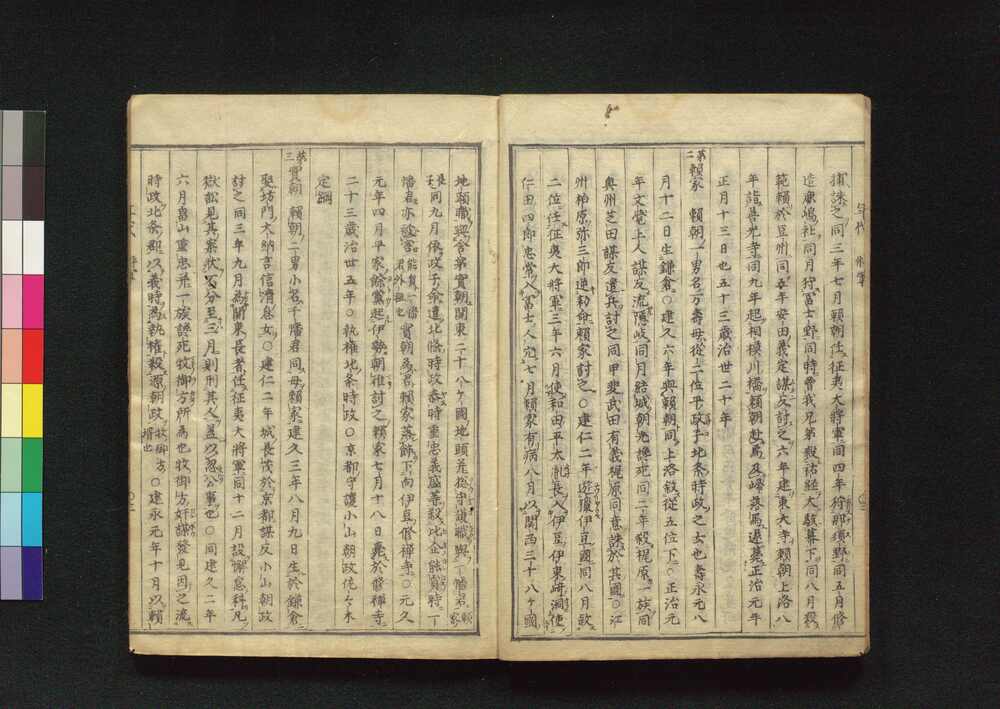 捕誅之同三年七月頼朝任征夷大将軍同四年狩那須野同五月修
造鹿嶋社同月狩冨士野同時曽我兄弟殺祐経大駭幕下同八月殺
範頼於豆州同五年安田義定謀反討之六年建東大寺頼朝上洛八
年詣善光寺同九年起相模川橋頼朝赴焉及帰落馬遂薨正治元年
正月十三日也五十三歳治世二十年
第二頼家 頼朝一男名万壽母從二位平政子北条時政之女也壽永元八
月十二日生鎌倉○建久六年與頼朝同上洛叙從五位下○正治元
年文覚上人謀反流隠岐同月結城朝光讒死同二年殺梶原一族同
奥州芝田謀反遣兵討之同甲斐武田有義梶原同意誅於其國○江
州柏原弥三郎逆勅命頼家討之○建仁二年遊猟伊豆國同八月敘
二位任征夷大将軍三年六月使和田平太胤長入伊豆伊東崎洞使
仁田四郎忠常入冨士人穴七月頼家有病八月以関西三十八ヶ國
地頭職與舎弟實朝関東二十八ヶ國地頭並守護職與一幡君頼家
長子同九月依政子命遣北條時政畠時重忠義盛等殺比企能員時一
幡君亦被害能員一幡君外祖也實朝為君頼家落飾下向伊豆修禅寺○元久
元年四月平家餘黨起伊勢朝雅討之頼家七月十八日薨於修禅寺
二十三歳治世五年○執権北条時政○京都守護小山朝政佐々木
定綱
第三實朝 頼朝二男小名千幡君同母頼家建久三年八月九日生於鎌倉
娶坊門大納言信清息女○建仁二年城長茂於京都謀反小山朝政
討之同三年九月為関東長者任征夷大将軍同十二月設懈怠科凡
獄訟見其案状不分至三月則刑其人蓋以忽公事也○同建久二年
六月畠山重忠并一族讒死牧御方所為也牧御方奸謀發見因之流
時政北条郡以義時為執権殺源朝政牧御方婿也○建永元年十月以頼